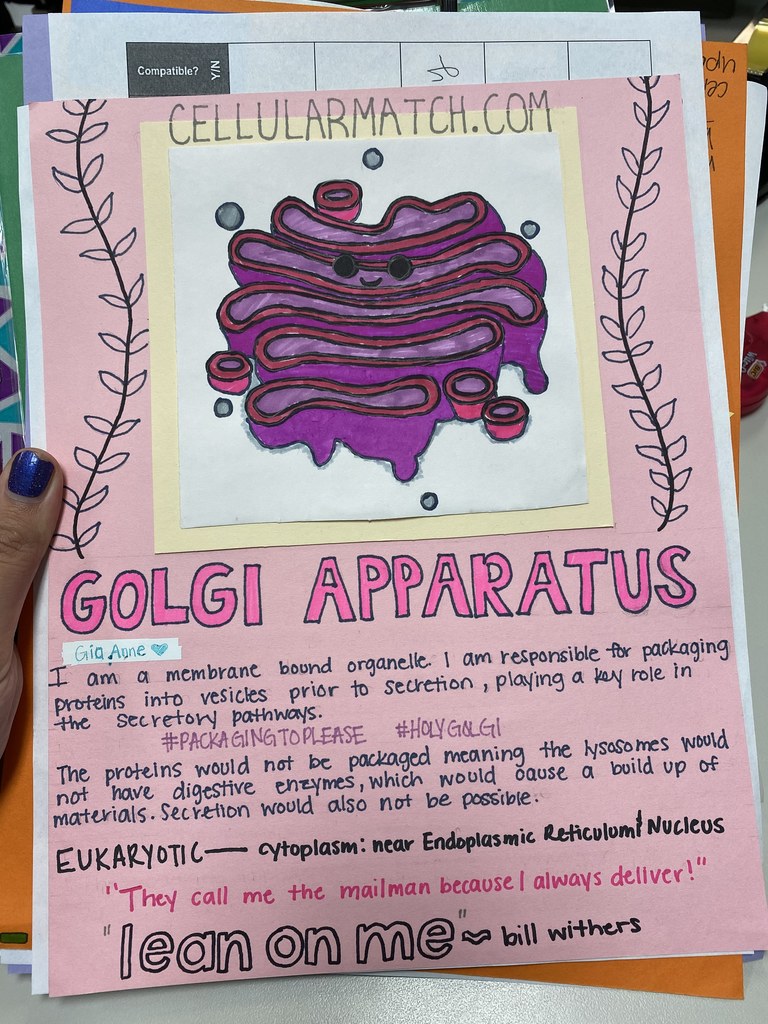 Compatible?
Y/N
CELLULARMATCH.COM
GOLGI APPARATUS
Gia Anne
I am a membrane bound organelle. I am responsible for packaging
proteins into vesicles prior to secretion, playing a key role in
the secretory pathways.
#PACKAGINGTOPLEASE #HOLYGOLGI
The proteins would not be packaged meaning the lysosomes would
not have digestive enzymes, which would cause a build up of
materials. Secretion would also not be possible.
EUKARYOTIC— cytoplasm: near Endoplasmic Reticulum & Nucleus
"They call me the mailman because I always deliver!"
"lean on me" ~ bill withers